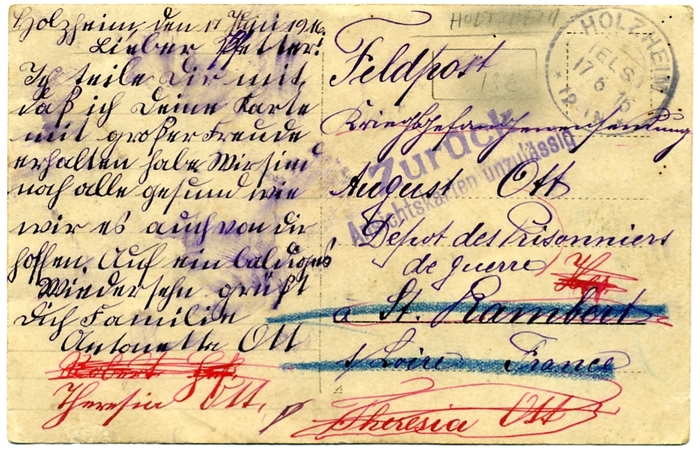 Holzheim den 17 Juni 1916.
Lieber Vetter!
Ich teile Dir mit
daß ich Deine Karte
mit großer Freude
erhalten habe Wir sind
noch alle gesund wie
wir es auch von dir
hoffen. Auf ein baldiges
Wiedersehn grüßt
Dich Familie
Antonette Ott
Theresia Ott.
HOLZHEIM
Feldpost
Kriegsgefangenensendung
Zurück
Ansichtskarten unzulässig
August Ott
Depot des Prisonniers
de Guerre
à St. Rambert
s/ Loire France
Theresia Ott
HOLZHEIM
(ELS.)
17 6 16